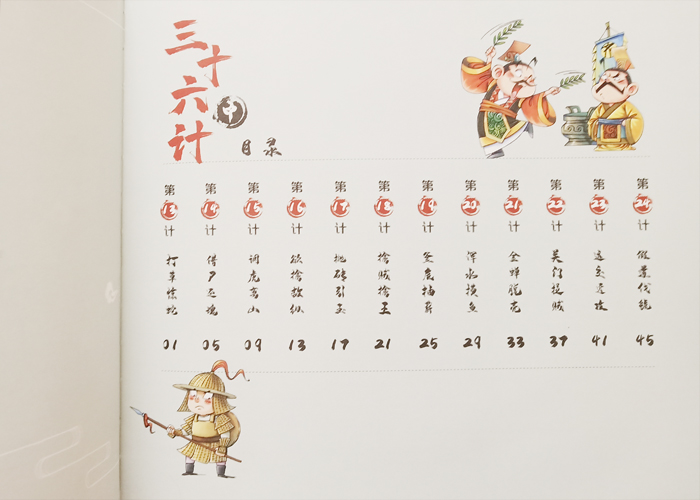 三十六计
中
目录
第13计 打草惊蛇 01
第14计 借尸还魂 05
第15计 调虎离山 09
第16计 欲擒故纵 13
第17计 抛砖引玉 17
第18计 擒贼擒王 21
第19计 釜底抽薪 25
第20计 浑水摸鱼 29
第21计 金蝉脱壳 33
第22计 关门捉贼 37
第23计 远交近攻 41
第24计 假道伐虢 45